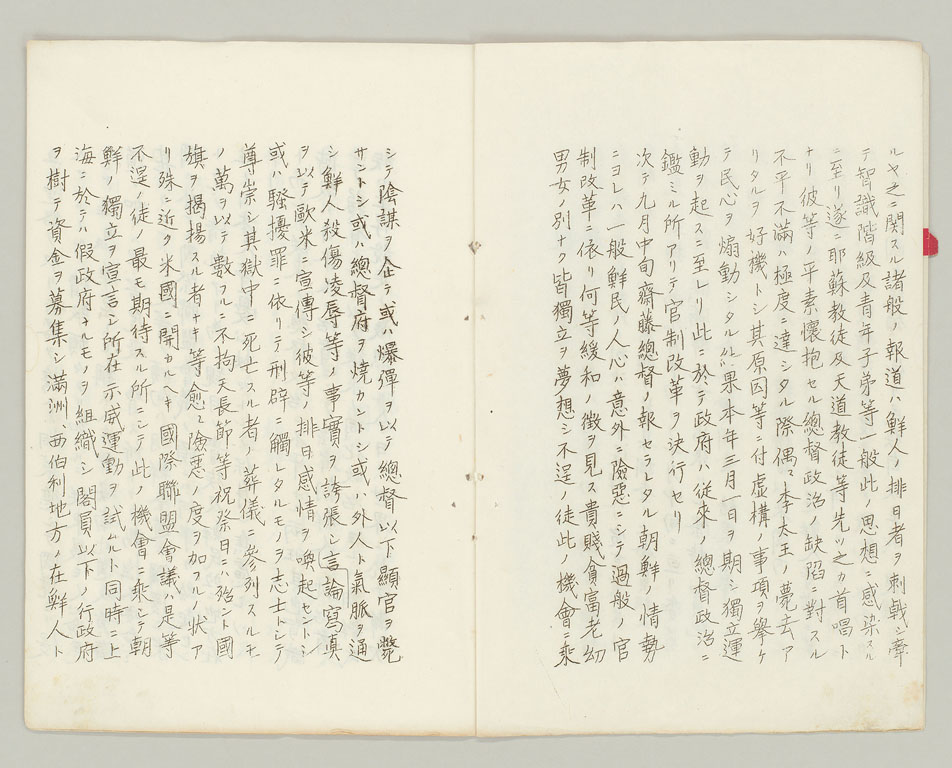 ルヤ之ニ関スル諸般ノ報道ハ鮮人ノ排日者ヲ刺戟シ牽
テ智識階級及青年子弟等一般此ノ思想ニ感染スル
ニ至リ遂ニ耶蘇教徒及天道教徒等先ツ之カ首唱ト
ナリ彼等ノ平素懐抱セル總督政治ノ缺陷ニ對スル
不平不滿ハ極度ニ達シタル際偶〻李太王ノ薨去ア
リタルヲ好機トシ其原因等ニ付虚構ノ事項ヲ擧ケ
テ民心ヲ煽動シタル結果本年三月一日ヲ期シ獨立運
動ヲ起スニ至レリ此ニ於テ政府ハ従來ノ總督政治ニ
鑑ミル所アリテ官制改革ヲ決行セリ
次テ九月中旬齋藤總督ノ報セラレタル朝鮮ノ情勢
ニヨレハ一般鮮民ノ人心ハ意外ニ險惡ニシテ過般ノ官
制改革ニ依リ何等緩和ノ徴ヲ見ス貴賤貧富老幼
男女ノ別ナク皆獨立ヲ夢想シ不逞ノ徒此ノ機會ニ乗
シテ陰謀ヲ企テ或ハ爆彈ヲ以テ總督以下顯官ヲ斃
サントシ或ハ總督府ヲ焼カントシ或ハ外人ト氣脈ヲ通
シ鮮人殺傷凌辱等ノ事實ヲ誇張シ言論寫眞
ヲ以テ歐米ニ宣傳シ彼等ノ排日感情ヲ喚起セントシ
或ハ騷擾罪ニ依リテ刑辟ニ觸レタルモノヲ志士トシテ
尊崇シ其獄中ニ死亡スル者ノ葬儀ニ參列スルモ
ノ萬ヲ以テ數フルニ不拘天長節等祝祭日ニハ殆ント國
旗ヲ揭揚スル者ナキ等愈〻險悪ノ度ヲ加フルノ状ア
リ殊ニ近ク米國ニ開カルヘキ國際聯盟會議ハ是等
不逞ノ徒ノ最モ期待スル所ニシテ此ノ機會ニ乗シテ朝
鮮ノ獨立ヲ宣言シ所在示威運動ヲ試ムルト同時ニ上
海ニ於テハ假政府ナルモノヲ組織シ閣員以下ノ行政府
ヲ樹テ資金ヲ募集シ滿洲、西伯利地方ノ在鮮人ト